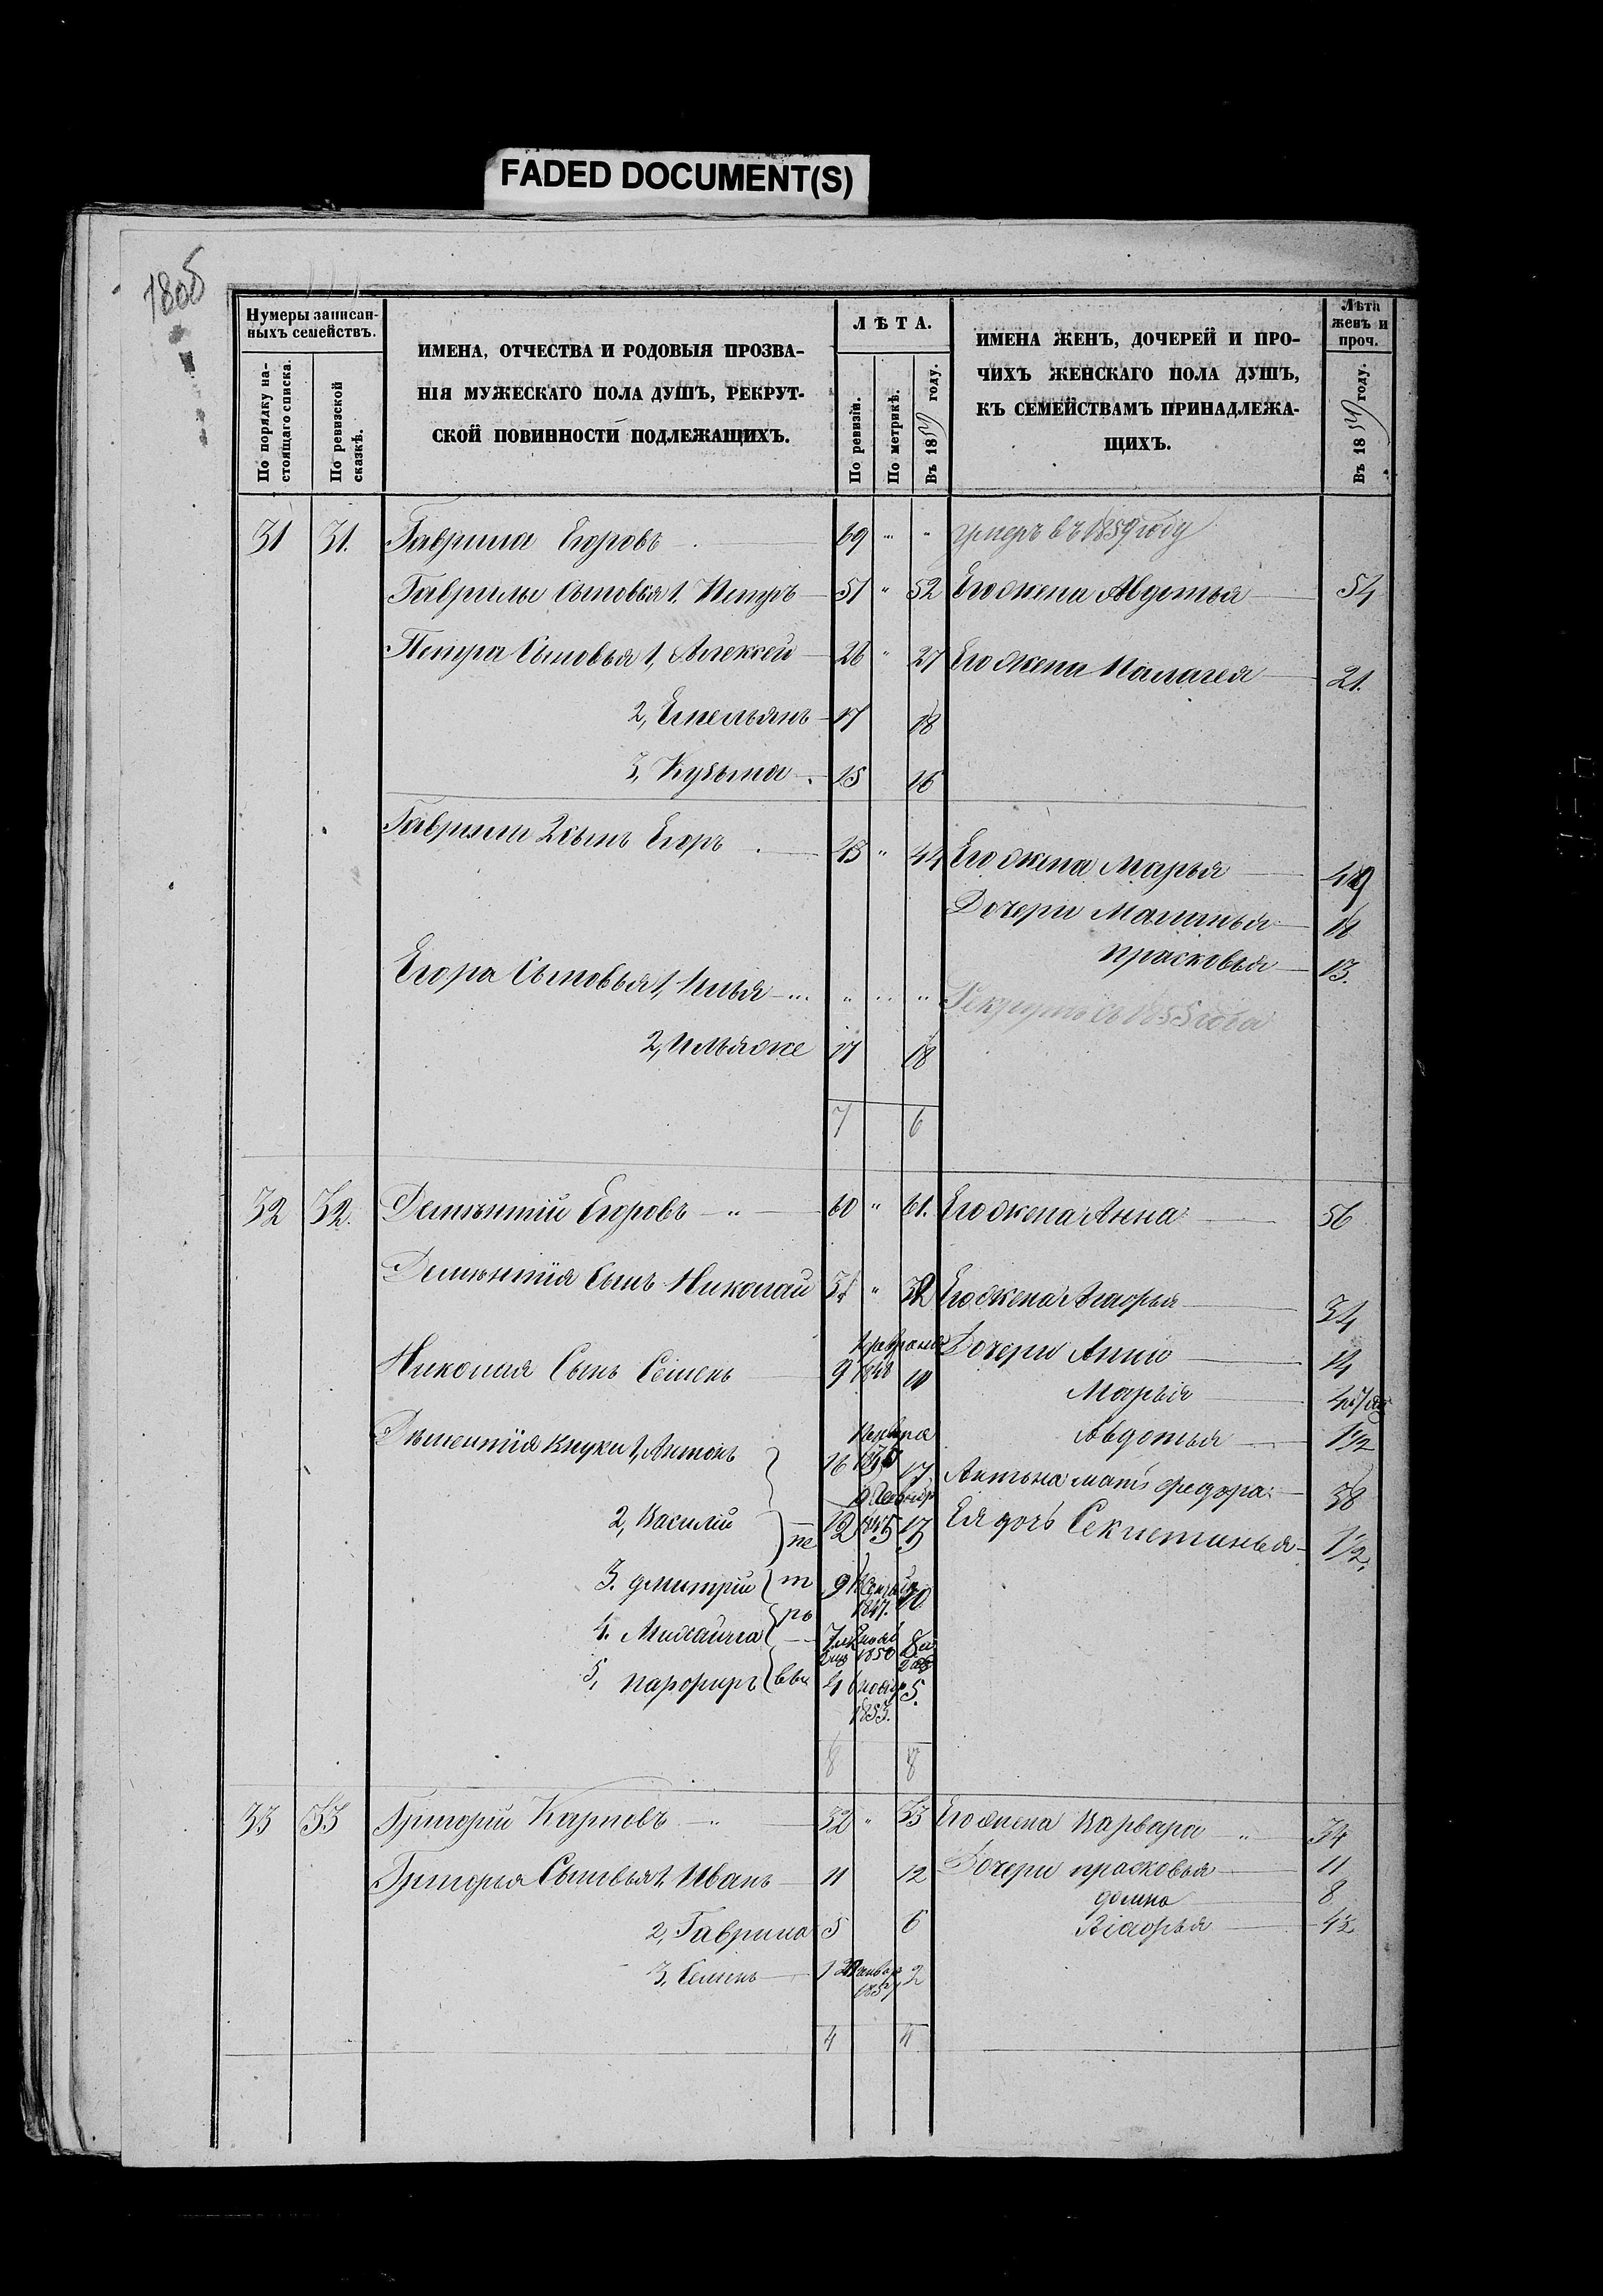 FADED DOCUMENT(S)
180б
Нумеры записан-
ныхъ семействъ.
По порядку на-
стоящаго списка.
По ревизской
сказкѣ.
ИМЕНА, ОТЧЕСТВА И РОДОВЫЯ ПРОЗВА-
НІЯ МУЖЕСКАГО ПОЛА ДУШЪ, РЕКРУТ-
СКОЙ ПОВИННОСТИ ПОДЛЕЖАЩИХЪ.
ЛѢТА.
По ревизіи.
По метрикѣ.
Въ 1859 году.
ИМЕНА ЖЕНЪ, ДОЧЕРЕЙ И ПРО-
ЧИХЪ ЖЕНСКАГО ПОЛА ДУШЪ,
КЪ СЕМЕЙСТВАМЪ ПРИНАДЛЕЖА-
ЩИХЪ.
Лѣта
женъ и
проч.
Въ 1859 году.
31 31. Гаврила Егоровъ 69 " " умеръ въ 1859 году
Гаврилы Сыновья 1. Петръ 51 " 52 Его жена Авдотья 54
Петра Сыновья 1, Алексей 26 " 27 Его жена Палагея 21.
2, Емельянъ 17 18
3, Кузьма 15 16
Гаврилы 2 сынъ Егоръ 43 " 44 Его жена Марья 49
Дочери Маланья 18
прасковья 13.
Егора Сыновья 1, Илья " " " Рекрутъ съ 1855 года
2, Илья же 17 18
7 6
32 32. Дементій Егоровъ " 60 " 61. Его жена Анна 56
Дементія Сынъ Николай 31 " 32 Его жена 34
Николая Сынъ Семенъ 9 1848 10 Дочери Анна 14
Марья
Авдотья 1/2
Дементія внуки 1, Антонъ 16 17. Антона мать федора 38
2, Василій 12 1845 13 Ея дочь 1/2.
3. дмитрій 9 1847. 10.
4. Михайла 7 1850 8
5, парфиръ 4 1853. 5.
8 8
33 33 Григорій Карповъ " 32 " 33 Его жена Варвара " 34
Григорья Сыновья 1. Иванъ 11 12 Дочери прасковья 11
домна 8
2, Гаврила 5 6
3, Семенъ 1 Январ 2
4 4